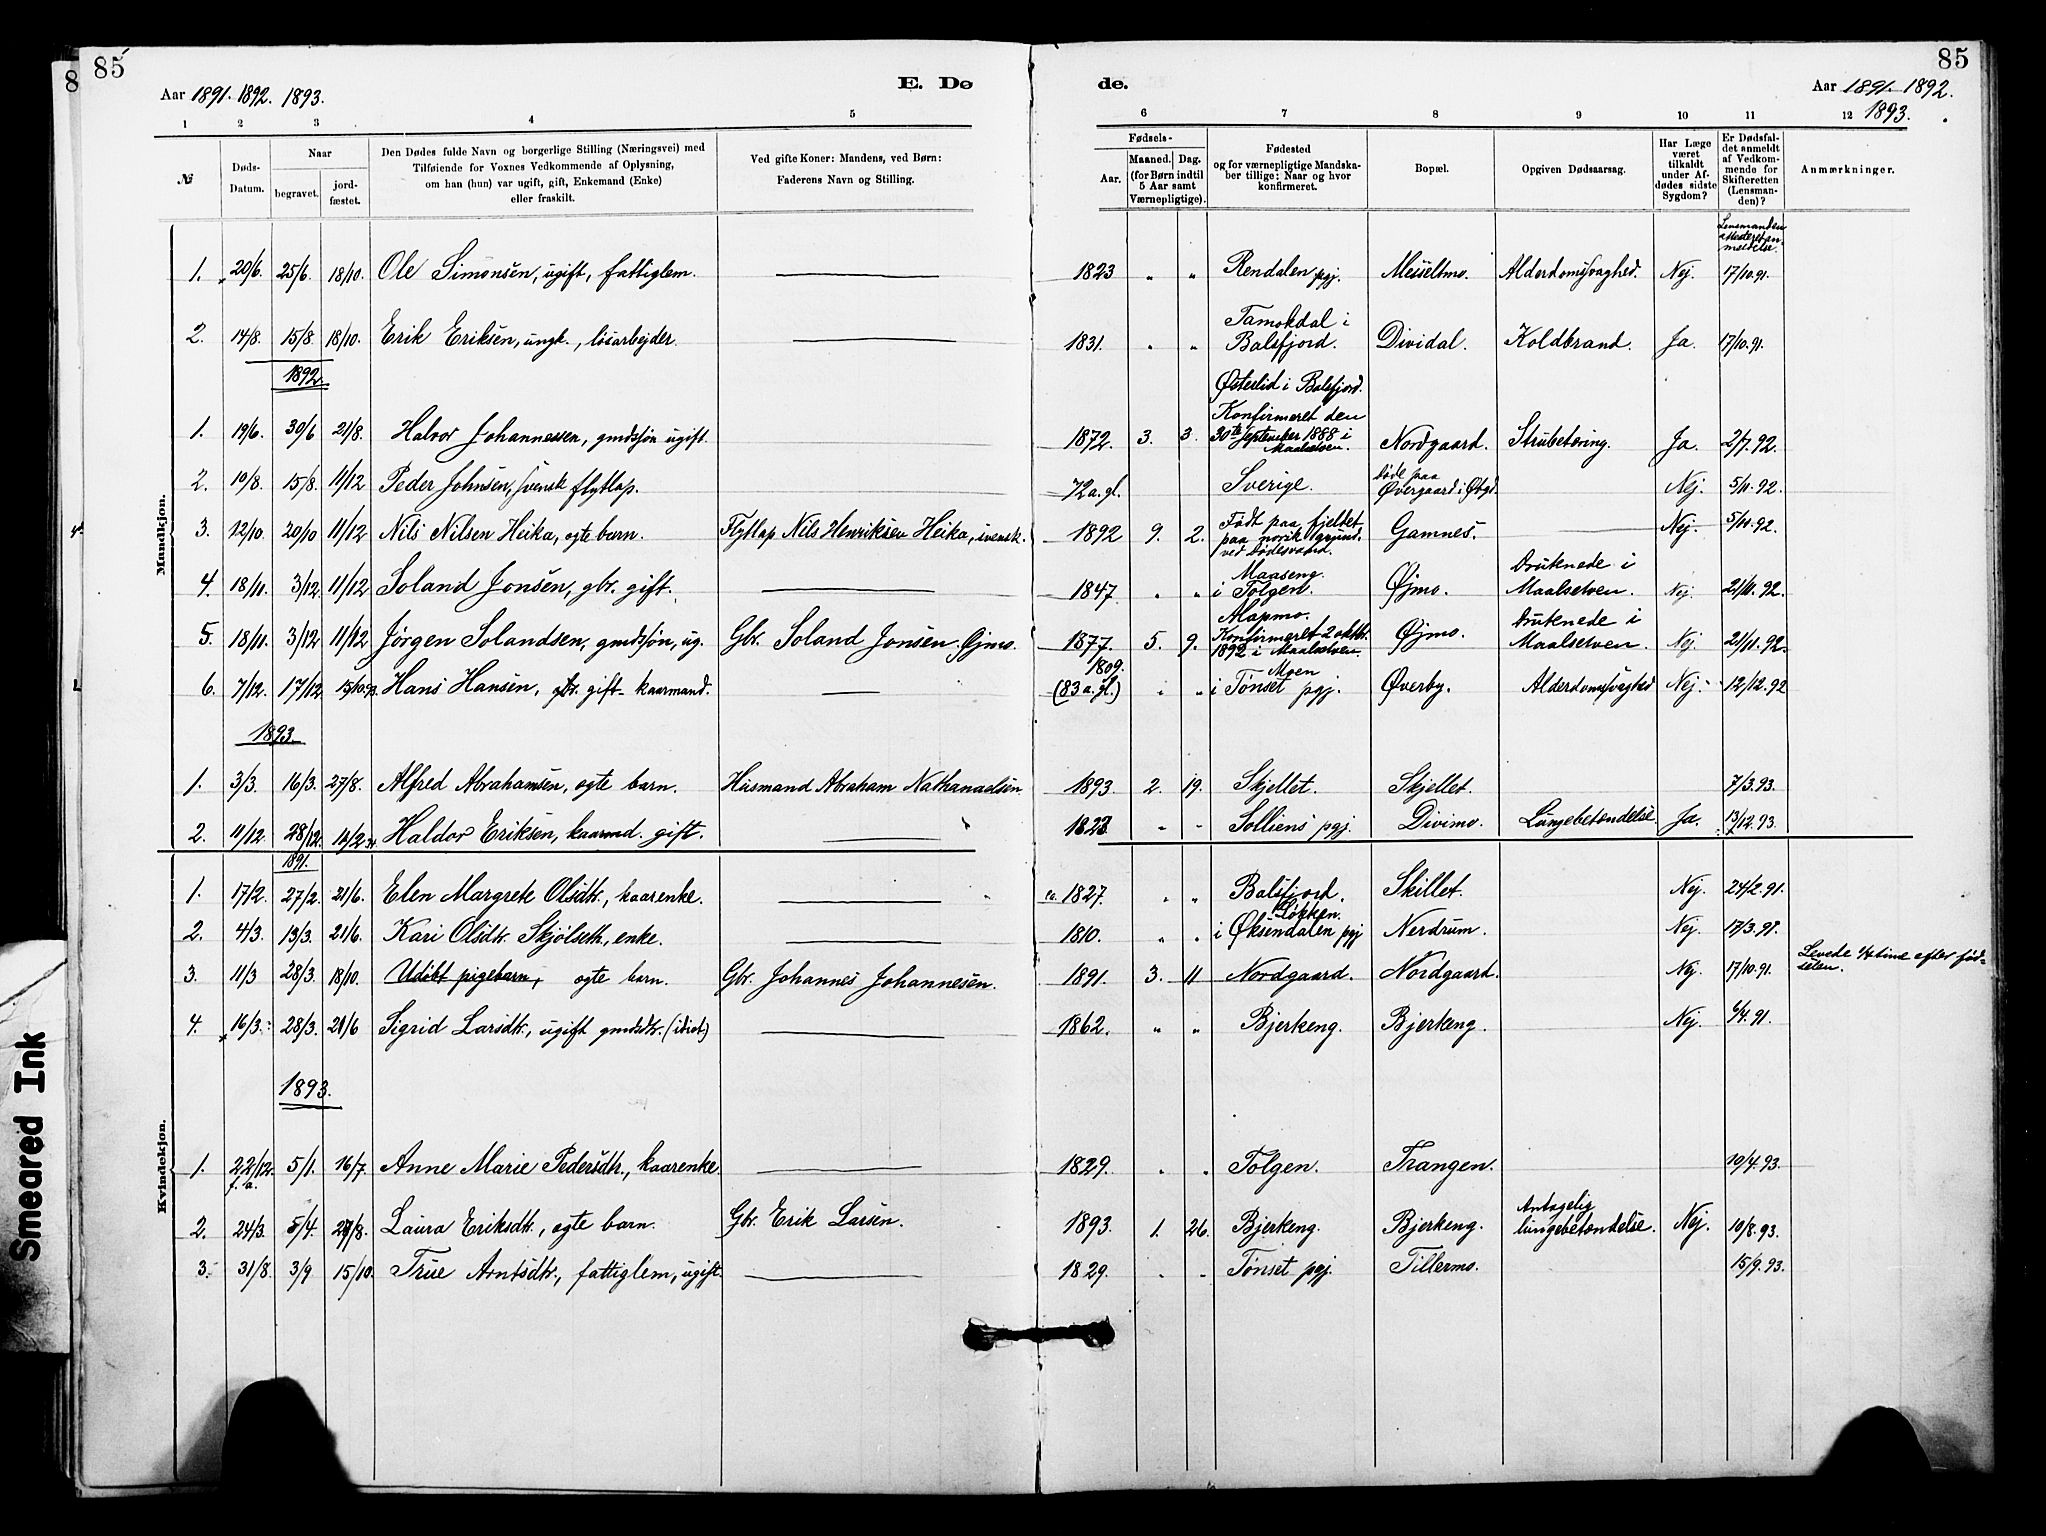 85
Aar 1891. 1892. 1893.
E. Dø
de.
85
Aar 1891. 1892.
1893.
1 2 3 4 5 6 7 8 9 10 11 12
№
Døds-
Datum.
Naar
begravet.
jord-
fæstet.
Den Dødes fulde Navn og borgerlige Stilling (Næringsvei) med
Tilføiende for Voxnes Vedkommende af Oplysning,
om han (hun) var ugift, gift, Enkemand (Enke)
eller fraskilt.
Ved gifte Koner: Mandens, ved Børn:
Faderens Navn og Stilling.
Fødsels-
Aar.
Maaned. Dag.
(for Børn indtil
5 Aar samt
Værnepligtige).
Fødested
og for værnepligtige Mandska-
ber tillige: Naar og hvor
konfirmeret.
Bopæl.
Opgiven Dødsaarsag.
Har Læge
været
tilkaldt
under Af-
dødes sidste
Sygdom?
Er Dødsfal-
det anmeldt
af Vedkom-
mende for
Skifteretten
(Lensman-
den)?
Anmærkninger.
Mandkjøn.
Lensmanden
1. 20/6. 25/6. 18/10. Ole Simonsen, ugift, fattiglem. 1823 " " Rendalen pgj. Messeltmo. Alderdomssvaghed. Nej. 17/10.91.
2. 14/8. 15/8. 18/10. Erik Eriksen, ungk., løsarbejder. 1831. " " Tamokdal i
Balsfjord. Dividal. Koldbrand. Ja. 17/10.91.
1892.
1. 19/6. 30/6 21/8. Halvor Johannessen, gmdssøn ugift. 1872. 3. 3. Østerlid i Balsfjord.
Konfirmeret den
30te September 1888 i
Maalselven. Nordgaard. Strubetæring. Ja. 2/7.92.
2. 10/8. 15/8. 11/12 Peder Johnsen, svensk flytlap. 72 a. gl. Sverige. døde paa
Øvergaard i Øbgd. Nej. 5/11.92.
3. 12/10. 20/10 11/12 Nils Nilsen Heika, ægte barn. Flytlap Nils Henriksen Heika, svensk. 1892 9. 2. Født paa fjeldet
paa norsk grund
ved Dødesvand. Gamnes. Nej. 5/11.92.
4. 18/11. 3/12. 11/12 Soland Jonsen, gbr. gift. 1847. " " Maaseng
i Tolgen. Øjmo. Druknede i
Maalselven. Nej. 21/11.92.
5. 18/11. 3/12 11/12 Jørgen Solandsen, gmdssøn, ug. Gbr. Soland Jonsen Øjmo. 1877. 5. 9. Alapmo.
Konfirmeret 2 oktbr.
1892 i Maalselven. Øjmo. Druknede i
Maalselven. Nej. 21/11.92.
6. 7/12. 17/12 15/10.93. Hans Hansen, gbr. gift - kaarmand. 1809.
(83 a. gl.) " " Moen
i Tønset pgj. Øverby. Alderdomssvaghed Nej. 12/12.92
1893.
1. 3/3. 16/3. 27/8. Alfred Abrahamsen, ægte barn. Husmand Abraham Nathanaelsen. 1893. 2. 19. Skjellet. Skjellet. 7/3.93.
2. 11/12. 28/12. Haldor Eriksen, kaarmd. gift. 1823. " " Solliens pgj. Divimo. Lungebetændelse. Ja. 13/12.93.
Kvindekjøn.
1891.
1. 17/2. 27/2. 21/6. Elen Margrete Olsdtr., kaarenke. ca. 1827. " " Balsfjord. Skillet. Nej. 24/2.91.
2. 4/3. 13/3. 21/6. Kari Olsdtr. Skjølseth, enke. 1810. " " Løkken.
i Øksendalen pgj Nerdrum. Nej. 17/3.91.
3. 11/3 28/3. 18/10. Udøbt pigebarn, ægte barn. Gbr. Johannes Johannesen. 1891. 3. 11 Nordgaard. Nordgaard. Nej. 17/10.91. Levede 1/2 time efter fød-
selen.
4. 16/3. 28/3. 21/6 Sigrid Larsdtr., ugift gmdsdtr. (idiot) 1862. " " Bjerkeng. Bjerkeng. Nej. 6/4.91.
1893.
1. 22/12.
f. a. 5/1. 16/7. Anne Marie Pedersdtr., kaarenke. 1829. " " Tolgen. Trangen. 10/4.93.
2. 24/3. 5/4. 27/8. Laura Eriksdtr., ægte barn. Gbr. Erik Larsen. 1893. 1. 26. Bjerkeng. Bjerkeng. Antagelig
lungebetændelse. Nej. 10/8.93.
3. 31/8. 3/9 15/10. True Arntsdtr., fattiglem, ugift. 1829. " " Tønset pgj. Tillermo. 15/9.93.
Smeared Ink